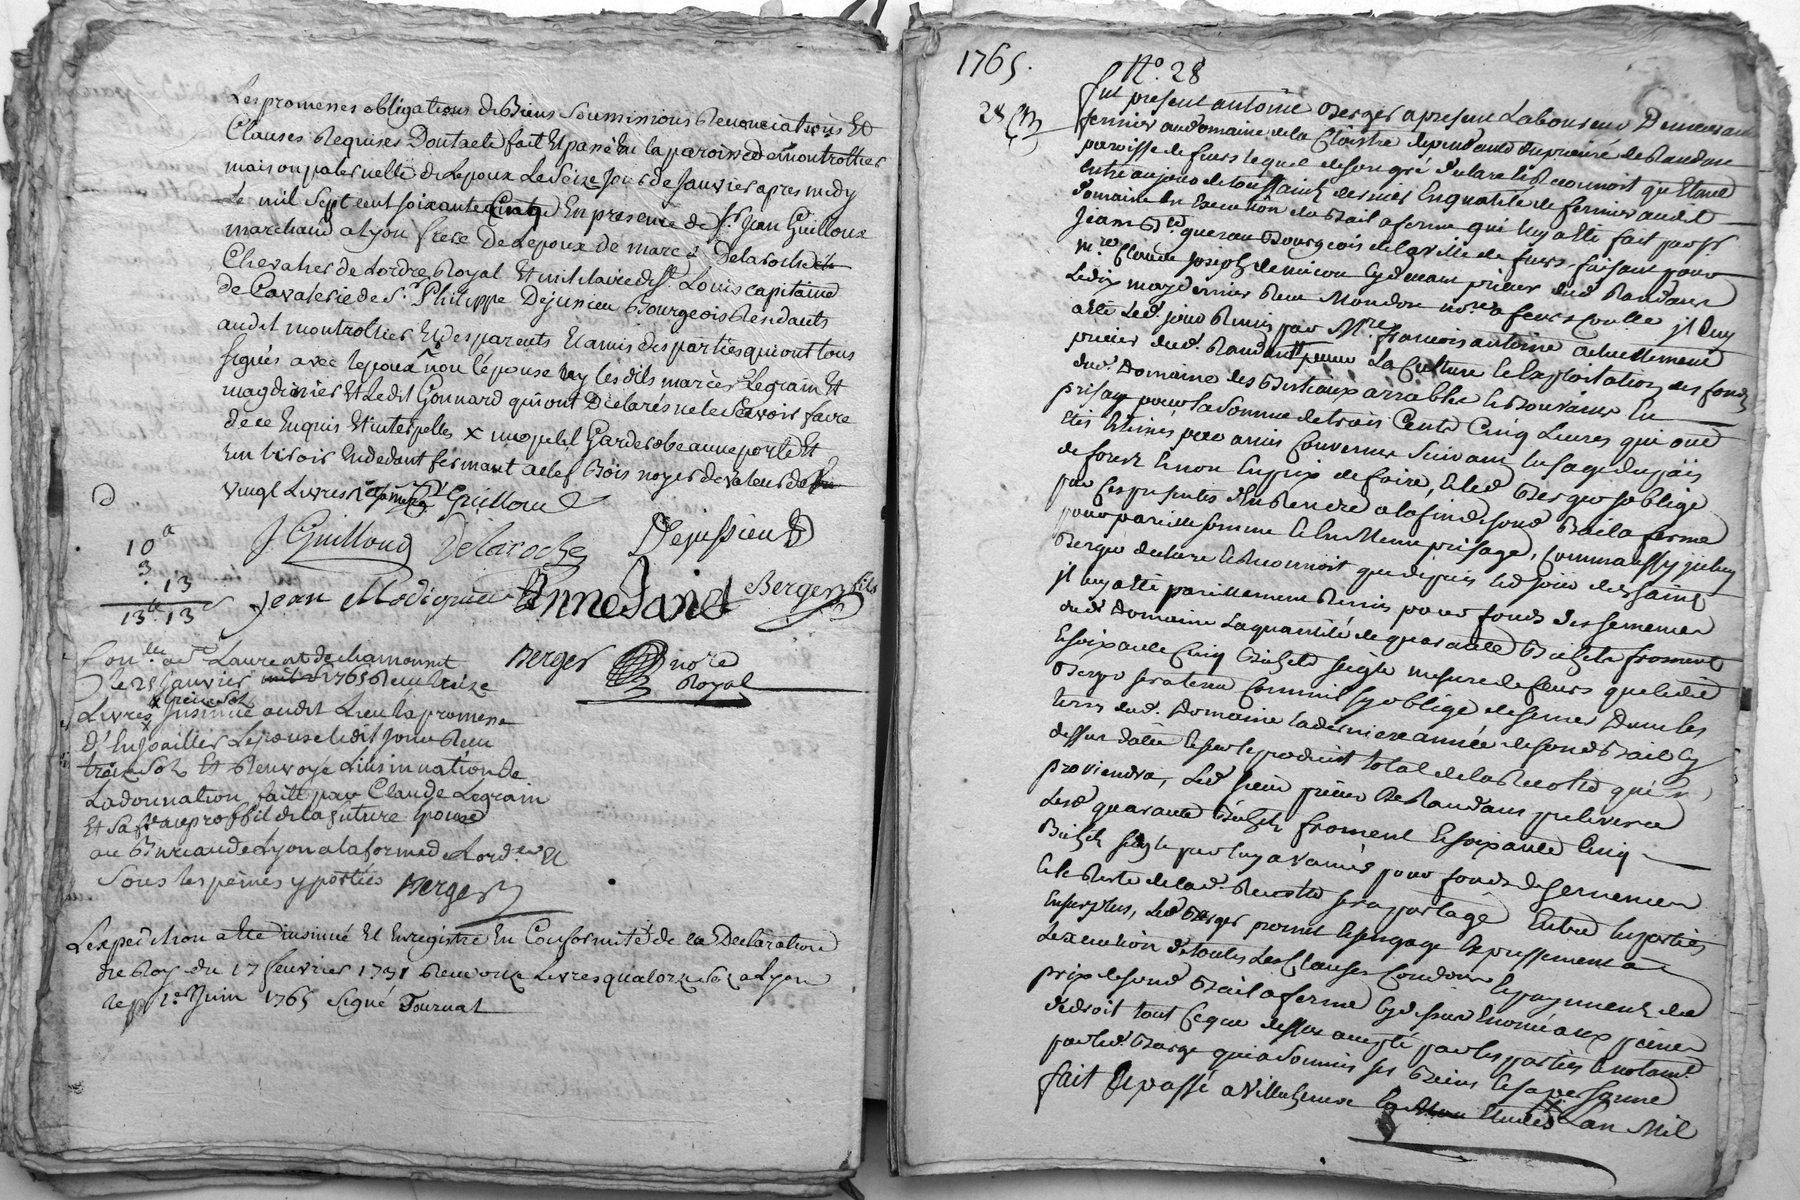 Les promesses obligations de Biens Soumissions Renonciations Et
Clauses Requises Dont acte fait Et passé En la paroisse de montrottier
maison paternelle de Lepoux Le Seize Jour de Janvier apres midy
mil Sept cent soixante Cinq En presence de Sr. Jean Guilloux
marchand a Lyon frere de Lepoux de marc Delaroche
Chevalier de Lordre Royal Et militaire de St. Louis capitaine
de Cavalerie de Sr. Philippe Dejussieu Bourgeois Residants
audit montrottier Et des parents Et amis des parties qui ont tous
signés avec lepoux non l'épouse ny les dits Legrain Et
magdinier Et Ledit Gonnard qui ont Déclarés ne le Scavoir faire
de ce Enquis Et interpellés x un petit Garderobe a une porte Et
un tiroir Endedant fermant a clef Bois noyer de valeur de
vingt Livres Guilloud
J Guilloud Delaroche Dejussieu
10
3. 13
13 tt. 13
Jean Anne Berger fils
Berger nore
Royal
Conlle. a St. Laurent de chamousset
le 25 Janvier 1765 Reçu treize
Livres treize Sols Insinué audit Lieu la promesse
D'Enjoailler Lepouse ledit Jour Reçu
treize Sols Et Renvoyé Linsinuation de
La donnation faite par Claude Legrain
Et Sa fe. au proffit de la future Epouse
au Bureau de Lyon a la forme de Lord.ce Et
Sous les peines y portées Berger
Lexpedition a été insinué Et Enregistré En Conformité de la Declaration
du Roy du 17 fevrier 1731 Reçu onze Livres quatorze Sols a Lyon
le 1er Juin 1765 Signé Tournat
1765.
N°. 28
28
fut present antoine Berger a present Laboureur Demeurant
fermier au domaine de la Cloistre dependant du prieuré de Randans
paroisse de feurs lequel de son gré declare et Reconnoit qu'Etant
Entré au jour de toussaint dernier En qualité de fermier audit
Domaine En Execution du Bail a ferme qui luy a été fait par Sr
Jean Bte. Bourgeois de la ville de feurs faisant pour
mre. Claude Joseph prieur dud. Randans
Le dix may dernier Reçu Mondon nore. a feurs Controllé jl luy
a été Led. jour Remis par Mre. francois antoine actuellement
prieur dud. Randans pour La Culture et Exploitation des fonds
dud. Domaine des Bestiaux arrables et Bouvines En
prisage pour la Somme de trois Cents Cinq Livres qui ont
étés Estimés par amis Convenus Suivant lusage du païs
de forest et non En prix de foire, et led Berger soblige
par Ces presentes d'En Rendre a la fin de sond. Bail a ferme
pour pareille somme et En Meme prisage, Comm'aussy jceluy
Berger declare et Reconnoit que depuis led jour des Saints
jl luy a été pareillement Remis pour fonds des semences
dud Domaine La quantité de quarante Bichets froment
Et soixante Cinq Bichets seigle mesure de feurs que ledit
Berger sera tenu Comm'il sy oblige de semer Dans les
terres dud. Domaine la derniere année de sond Bail Cy
dessus datté et sur le produit total de la Recolte qui En
proviendra, Led. Sieur prieur de Randans prelevera
Lesd quarante Bichets froment et soixante Cinq
Bichets seigle par luy avancés pour fonds de semences
et le Reste de lad. Recolte sera partagé Entre les parties
En surplus, Led Berger promet et sengage Expressement a
Lexecution de toutes les Clauses Conditions et payement du
prix de sond Bail a ferme Cy dessus Enoncé aux peines
de droit tout Ce que dessus accepté par les parties Et notamt.
par led. Berger qui a Soumis ses Biens et sa personne
fait Et passé a Villechenève Etude Lan Mil